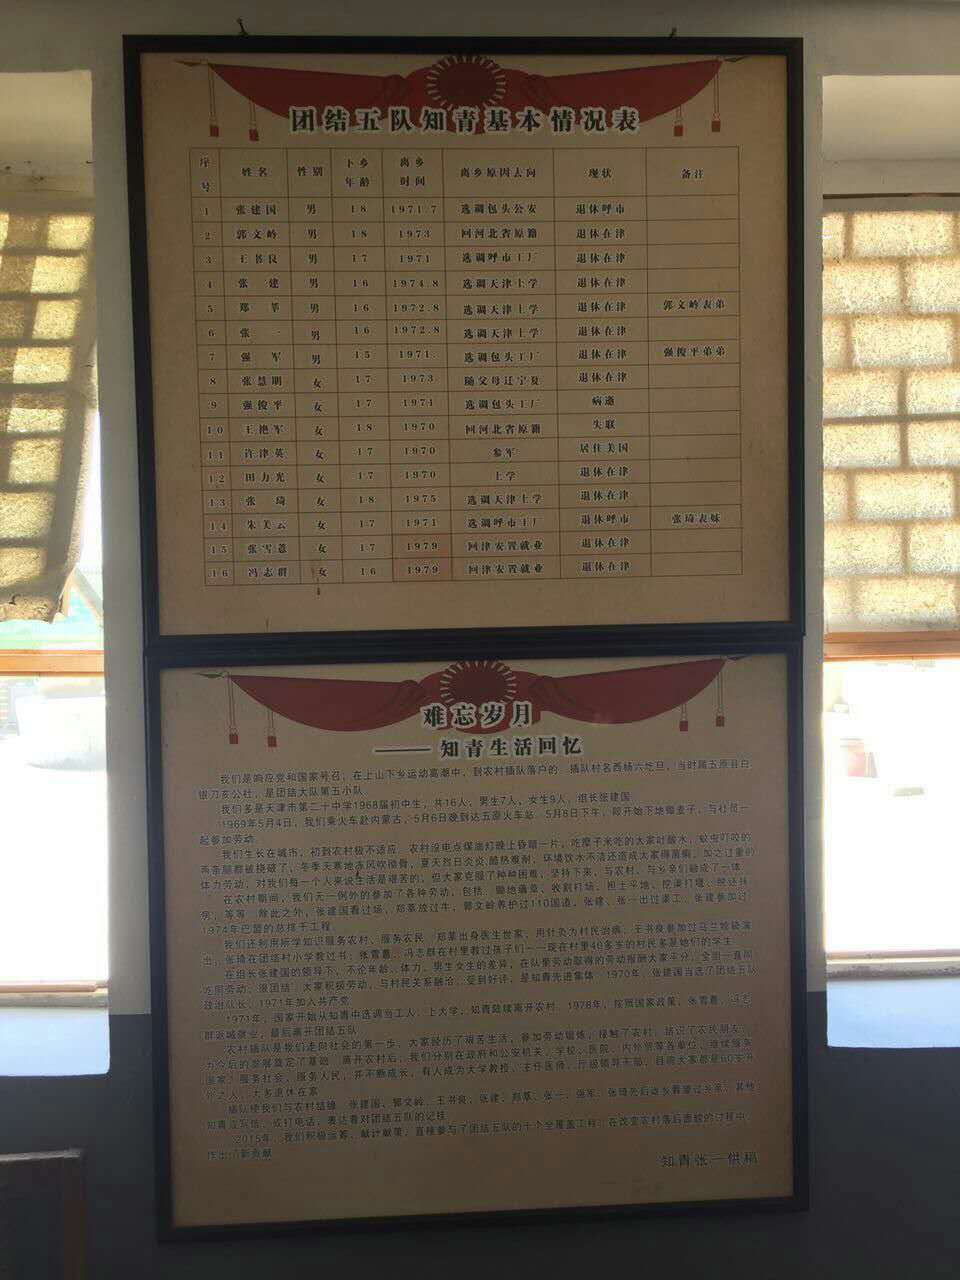 团结五队知青基本情况表
序号 姓名 性别 下乡年龄 离乡时间 离乡原因去向 现状 备注
1 张建国 男 18 1971.7 选调包头公安 退休呼市
2 郭文岭 男 18 1973 回河北省原籍 退休在津
3 王书良 男 17 1971 选调呼市工厂 退休在津
4 张建 男 16 1974.8 选调天津上学 退休在津
5 郑莘 男 16 1972.8 选调天津上学 退休在津 郭文岭表弟
6 张一 男 16 1972.8 选调天津上学 退休在津
7 强军 男 15 1971. 选调包头工厂 退休在津 强俊平弟弟
8 张慧明 女 17 1973 随父母迁宁夏 退休在津
9 强俊平 女 17 1971 选调包头工厂 病逝
10 王艳军 女 18 1970 回河北省原籍 失联
11 许津英 女 17 1970 参军 居住美国
12 田力光 女 17 1970 上学 退休在津
13 张琦 女 18 1975 选调天津上学 退休在津
14 朱美云 女 17 1971 选调呼市工厂 退休呼市 张琦表妹
15 张雪薏 女 17 1979 回津安置就业 退休在津
16 冯志群 女 16 1979 回津安置就业 退休在津
难忘岁月
——知青生活回忆
我们是响应党和国家号召，在上山下乡运动高潮中，到农村插队落户的 插队村名西杨六圪旦，当时属五原县白
银刀亥公社，是团结大队第五小队
我们多是天津市第二十中学1968届初中生，共16人，男生7人，女生9人，组长张建国
1969年5月4日，我们乘火车赴内蒙古，5月6日晚到达五原火车站 5月8日下午，即开始下地锄麦子，与社员一
起参加劳动
我们生长在城市，初到农村极不适应 农村没电点煤油灯晚上昏暗一片，吃糜子米吃的大家吐酸水，蚊虫叮咬的
两条腿都被挠破了，冬季天寒地冻风吹彻骨，夏天烈日炎炎酷热难耐，环境饮水不洁还造成大家得菌痢，加之过重的
体力劳动，对我们每一个人来说生活是艰苦的，但大家克服了种种困难，坚持下来，与农村、与乡亲们融成了一体
在农村期间，我们无一例外的参加了各种劳动，包括 锄地薅草、收割打场、担土平地、挖渠打堰、脱坯抹
房，等等 除此之外，张建国看过场，郑莘放过牛，郭文岭养护过110国道，张建、张一出过渠工，张建参加过
1974年巴盟的总排干工程
我们还利用所学知识服务农村、服务农民 郑莘出身医生世家，用针灸为村民治病，王书良参加过乌兰牧骑演
出，张琦在团结村小学教过书，张雪薏、冯志群在村里教过孩子们——现在村里40多岁的村民多是她们的学生
在组长张建国的领导下，不论年龄、体力、男生女生的差异，在队里劳动取得的劳动报酬大家平分，全组一直同
吃同劳动，很团结 大家积极劳动，与村民关系融洽，受到好评，是知青先进集体 1970年，张建国当选了团结五队
政治队长，1971年加入共产党
1971年，国家开始从知青中选调当工人、上大学，知青陆续离开农村，1978年，按照国家政策，张雪薏、冯志
群返城就业，最后离开团结五队
农村插队是我们走向社会的第一步，大家经历了艰苦生活，参加劳动锻炼，接触了农村，结识了农民朋友，
为今后的发展奠定了基础 离开农村后，我们分别在政府和公安机关、学校、医院、内外贸等各单位，继续服务
国家、服务社会、服务人民，并不断成长，有人成为大学教授、主任医师、厅级领导干部，目前大家都是60岁开
外之人，大多退休在家
插队使我们与农村结缘 张建国、郭文岭、王书良、张建、郑莘、张一、强军、张琦先后返乡看望过乡亲，其他
知青或写信、或打电话，表达着对团结五队的记挂
2015年，我们积极运筹、献计献策，直接参与了团结五队的十个全覆盖工程，在改变农村落后面貌的过程中，
作出了新贡献
知青张一供稿